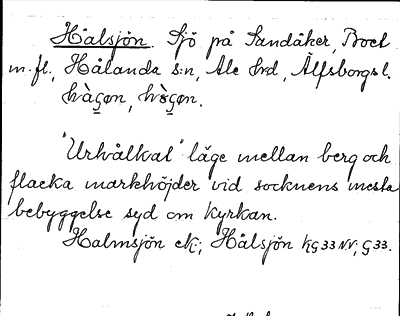 Hålsjön. Sjö på Sandåker, Boet
m.fl., Hålanda s:n, Ale hrd, Älfsborgs l.
"Urhålkat" läge mellan berg och
flacka markhöjder vid socknens mesta
bebyggelse syd om kyrkan.
Halmsjön ek; Hålsjön KG33NV; G33.